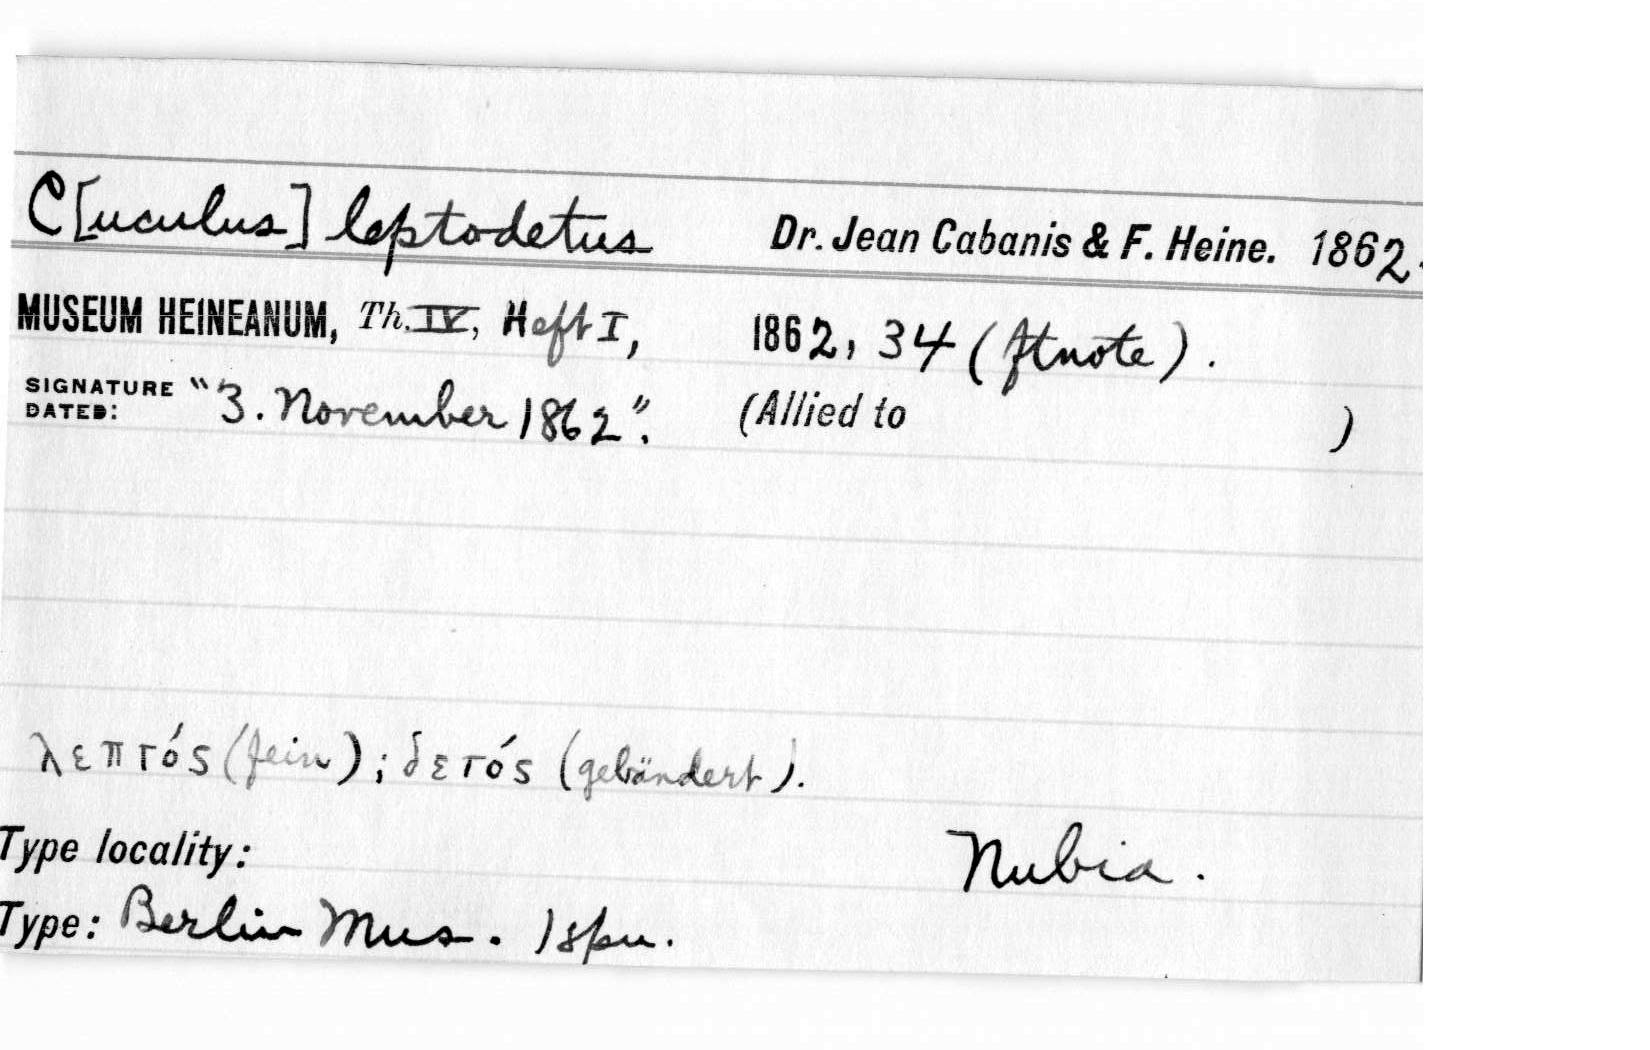 C[uculus] leptodetus Dr. Jean Cabanis & F. Heine. 1862.
MUSEUM HEINEANUM, Th. IV, Heft I, 1862, 34 (ftnote).
SIGNATURE DATED: "3. November 1862". (Allied to )
λεπτός (fein); δετός (gebändert).
Type locality: Nubia.
Type: Berlin Mus. 1 spn.